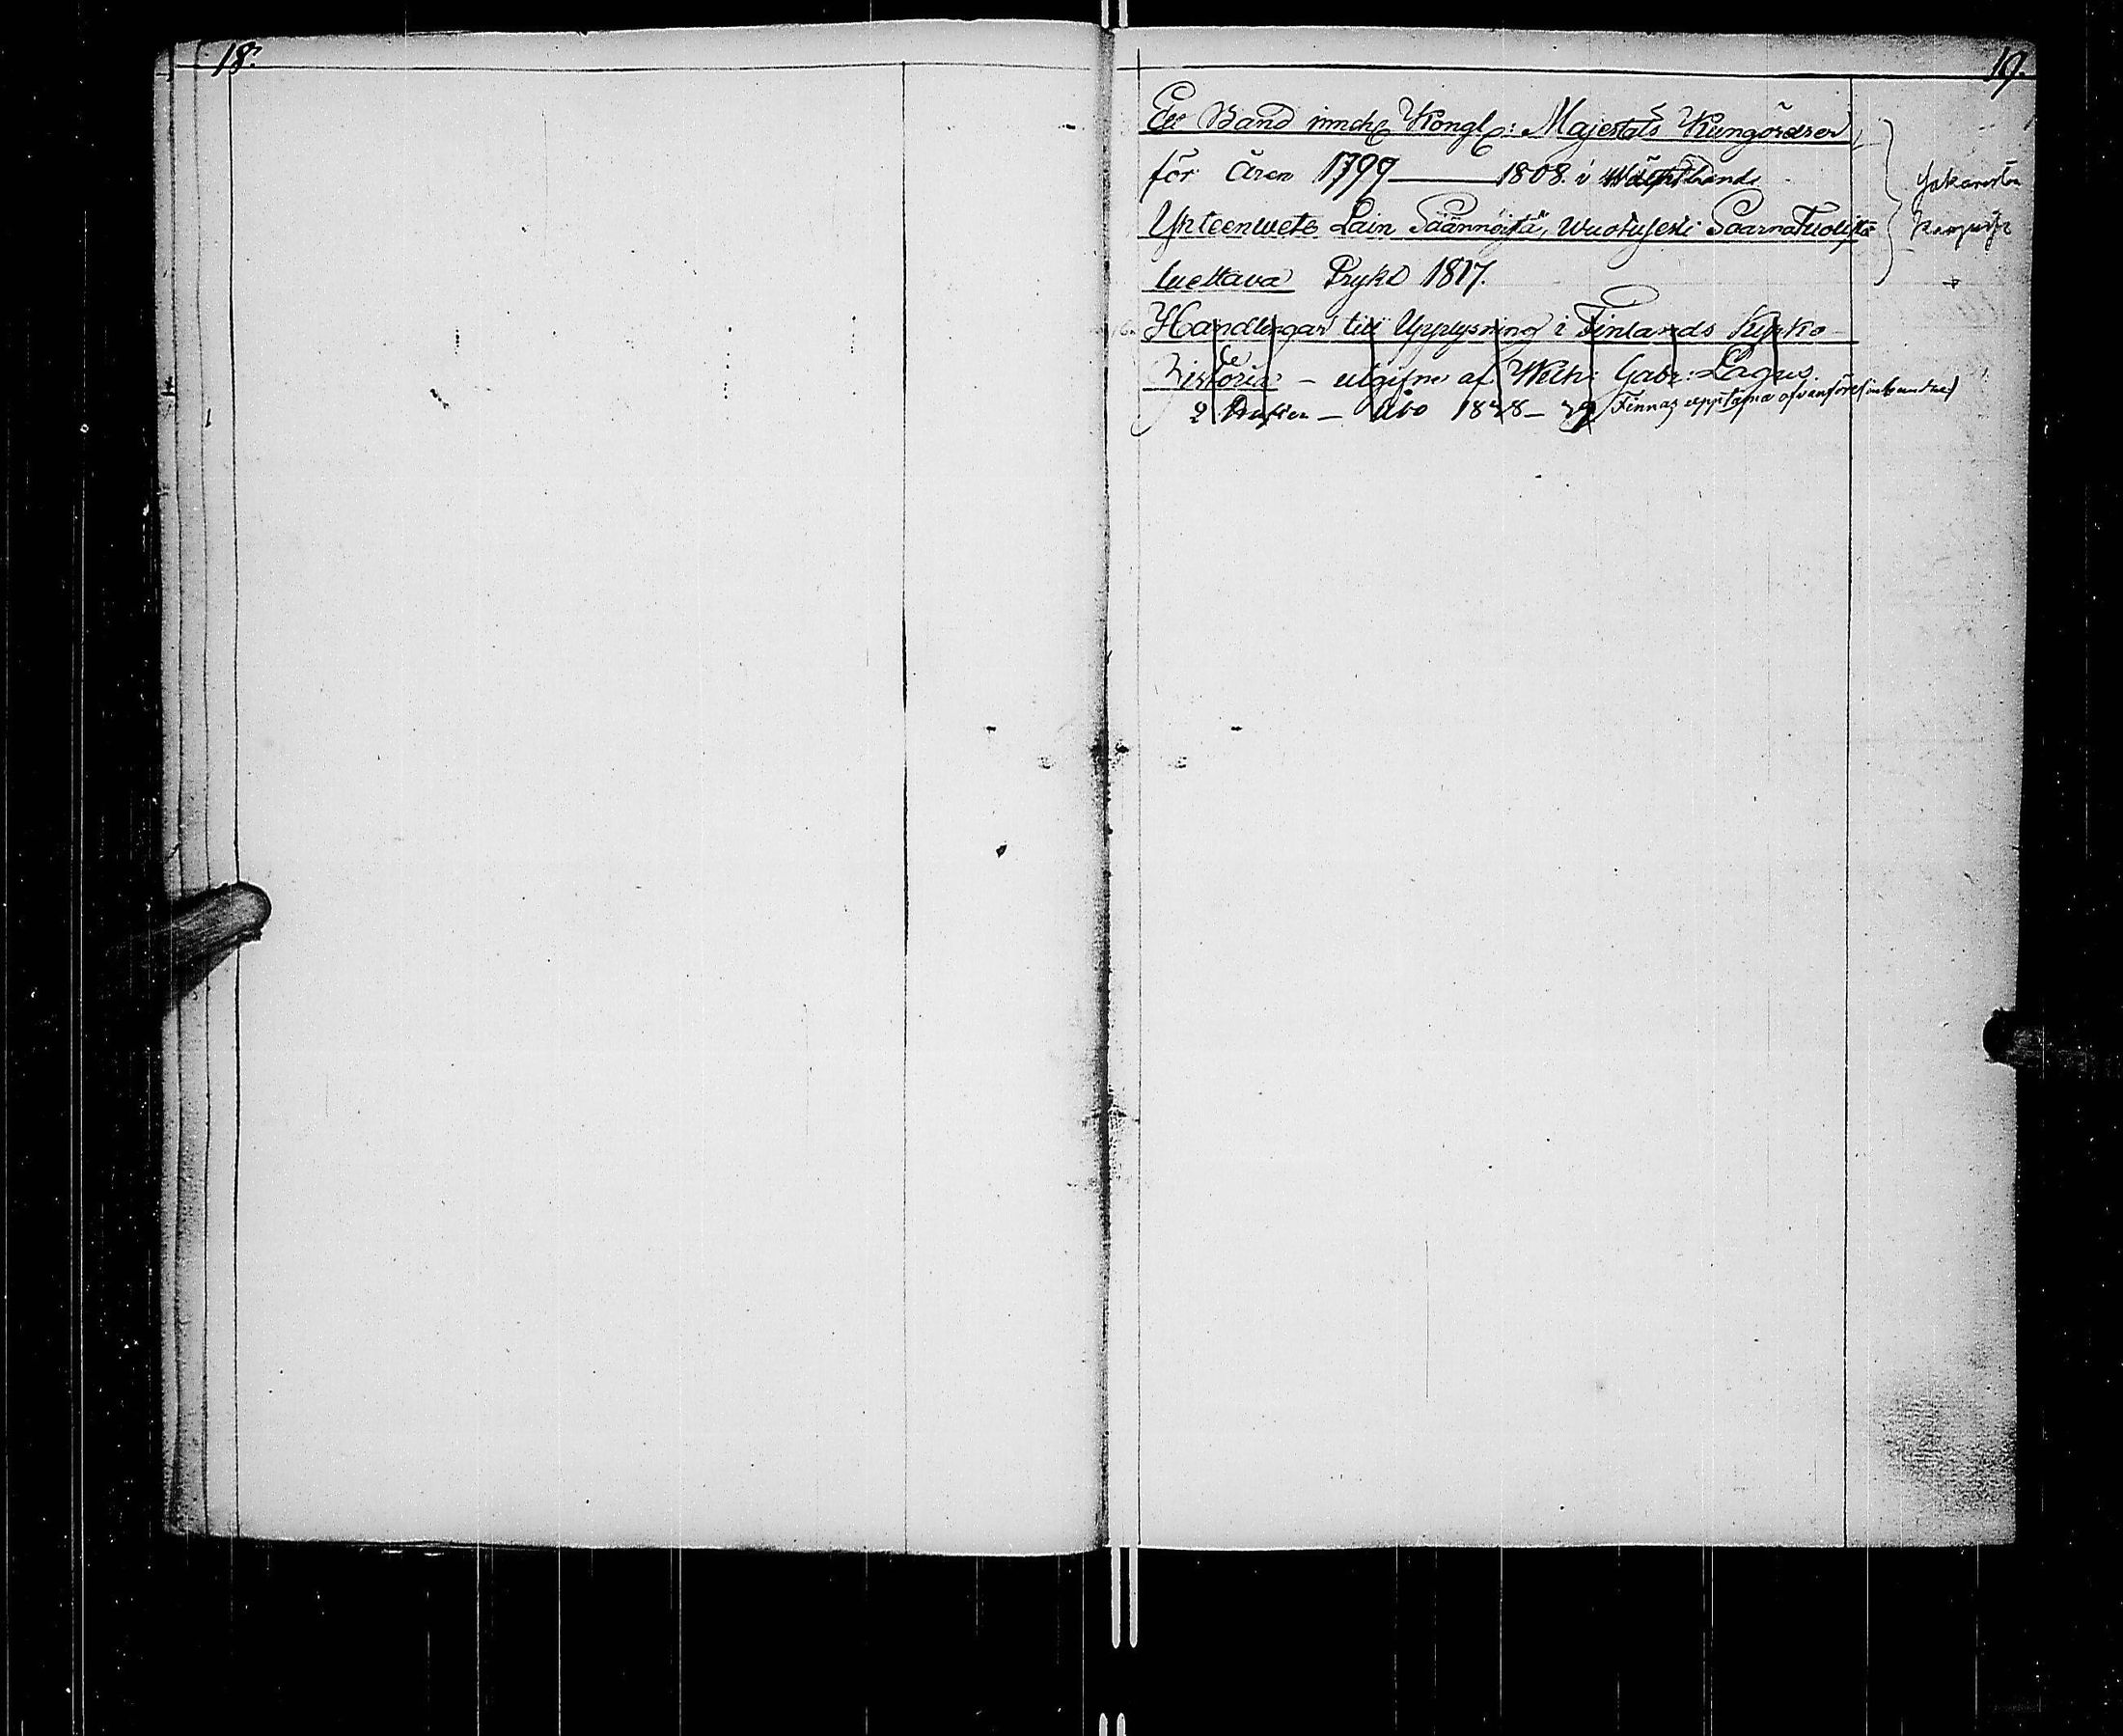 18.
19.
Ett Band innehς Kongl: Majestäts Kungörelser
för Åren 1799 — 1808. i band.
Yhteenweto Lain Säännöistä, Wuotisesti SaarnaTuolista
luettava Tryckt 1817.
Handlingar till Upplysning i Finlands Kyrko-
historie: — utgifne af Wilh: Gabr: Lagus
2 Häften — Åbo 1838 — 39 Finnas upptagna ofvanföre (inbundne)